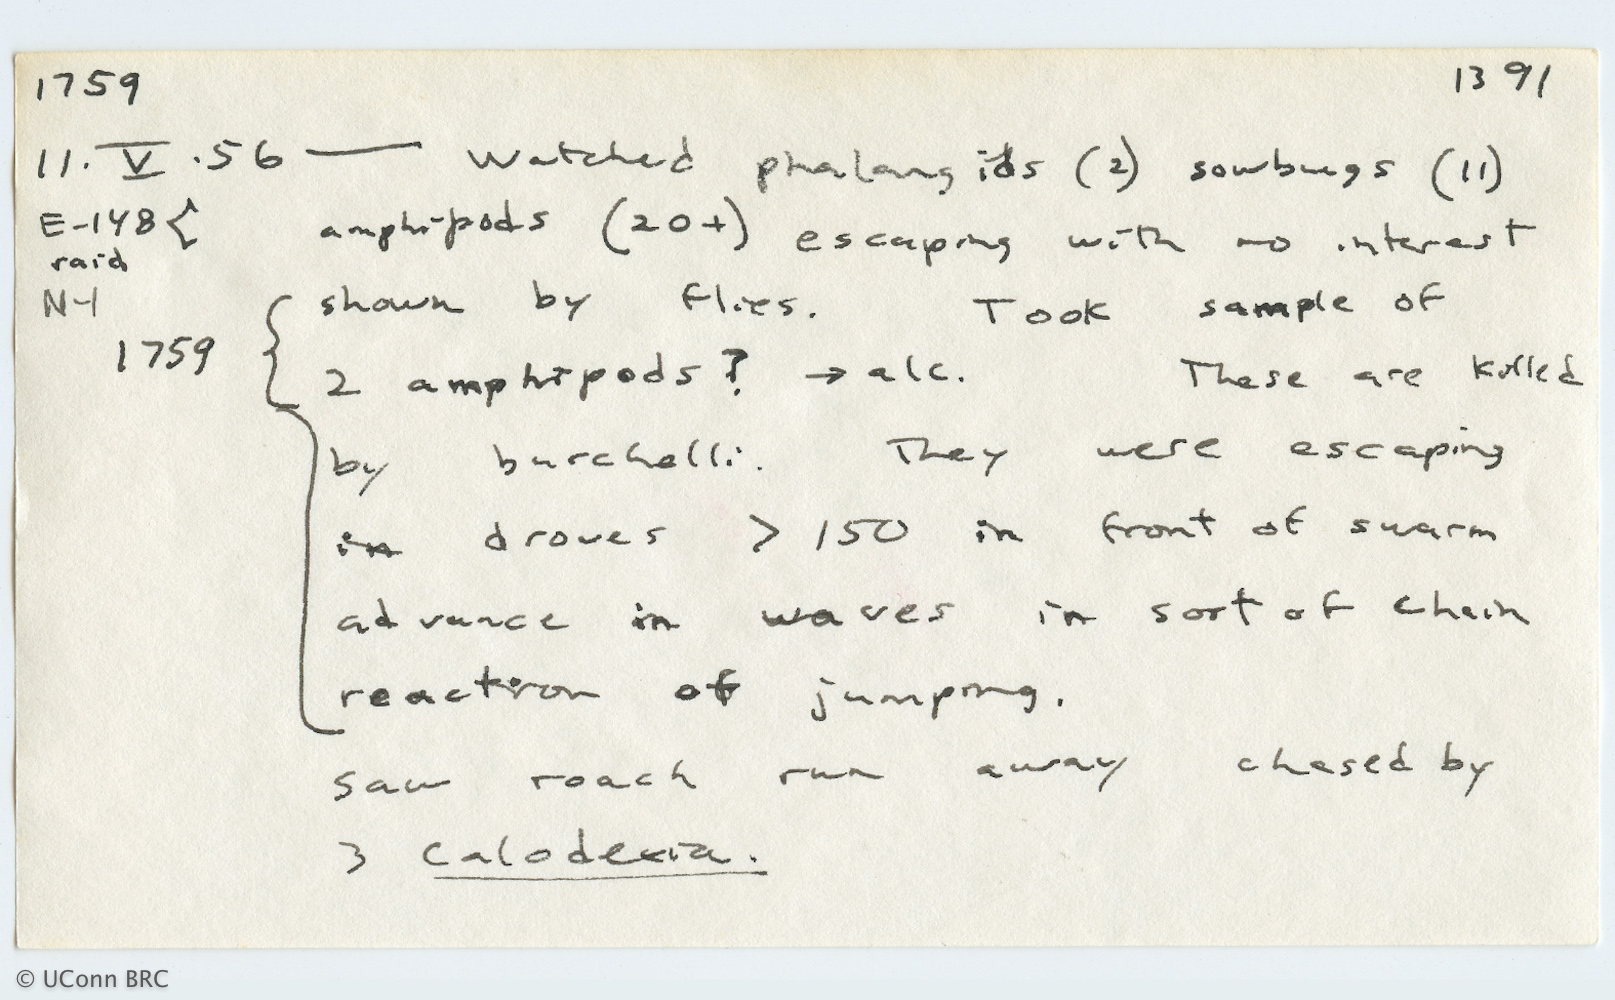 1759 1391
11.V.56 — Watched phalangids (2) sowbugs (11)
E-148 { amphipods (20+) escaping with no interest
raid
N-1 shown by flies. Took sample of
1759 { 2 amphipods? → alc. These are killed
by burchelli. They were escaping
in droves > 150 in front of swarm
advance in waves in sort of chain
reaction of jumping.
Saw roach run away chased by
3 Calodexia.
© UConn BRC